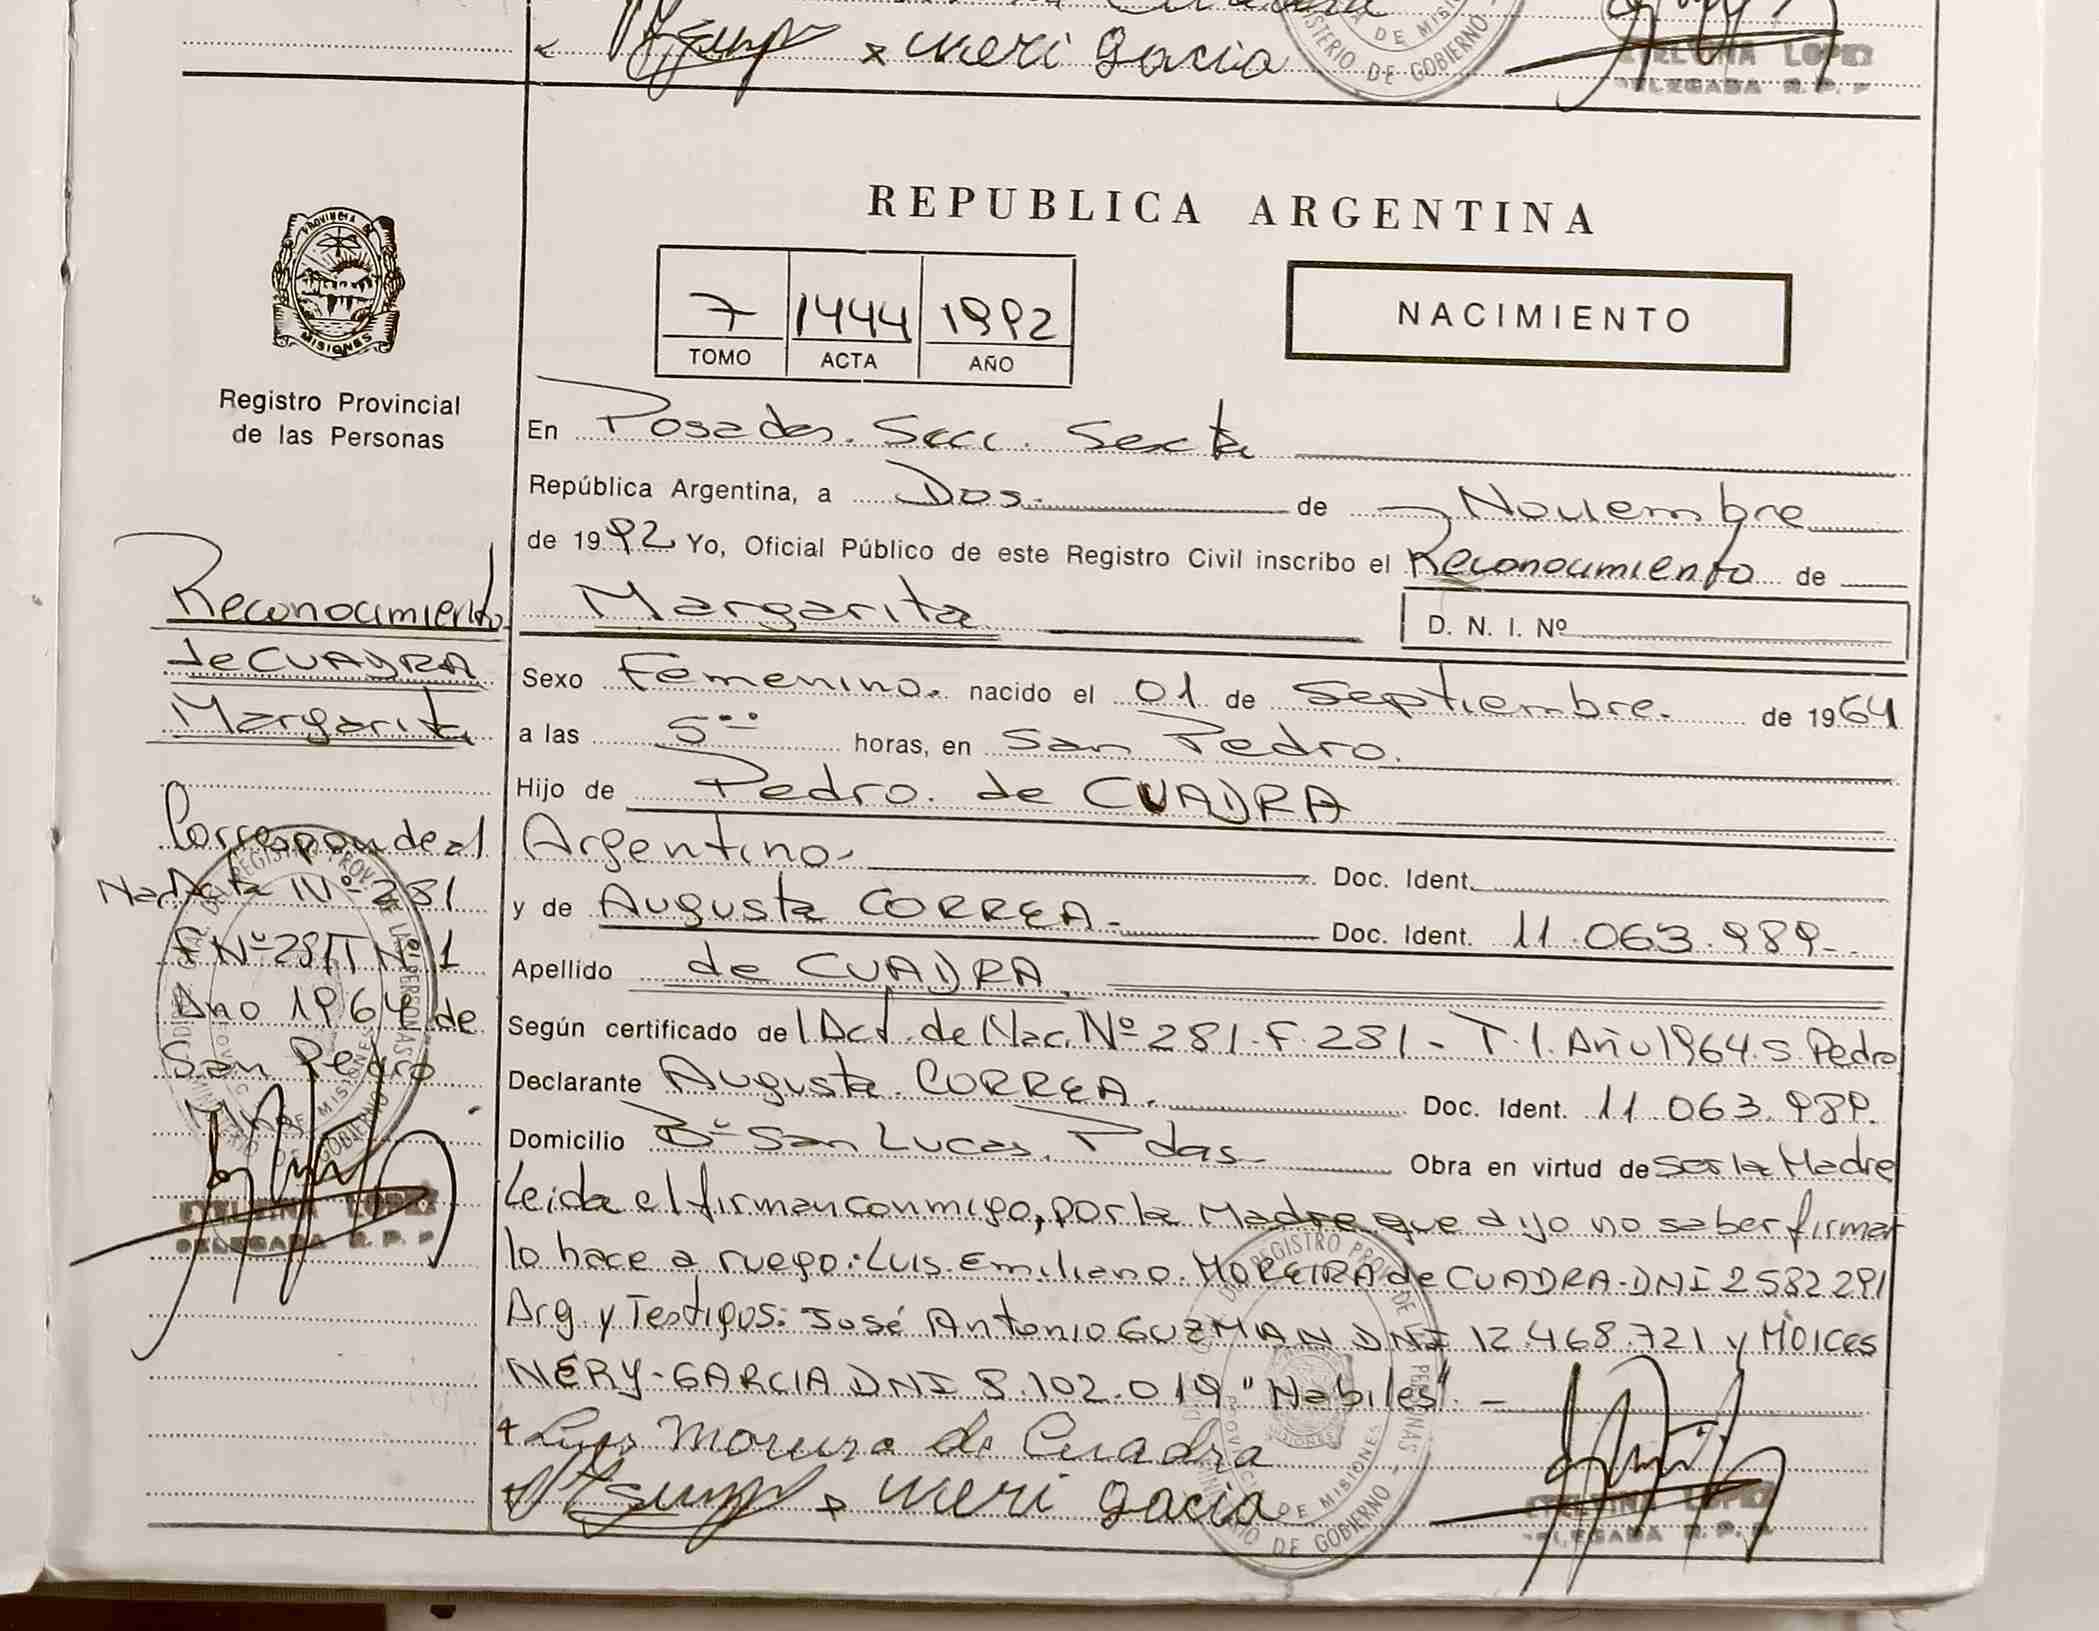 x meri gacia
MINISTERIO DE GOBIERNO
ETELVINA LOPEZ
DELEGADA R. P. P
PROVINCIA DE MISIONES
REPUBLICA ARGENTINA
7 1444 1992
TOMO ACTA AÑO
NACIMIENTO
Registro Provincial
de las Personas
En Posadas. Secc. Sexta
República Argentina, a Dos. de Noviembre
de 1992 Yo, Oficial Público de este Registro Civil inscribo el Reconocimiento de
Margarita D. N. I. Nº
Sexo Femenino. nacido el 01 de Septiembre. de 1964
a las 5°° horas, en San Pedro.
Hijo de Pedro. de CUADRA
Argentino- Doc. Ident.
y de Augusta CORREA.- Doc. Ident. 11.063.989-
Apellido de CUADRA.
Según certificado del Act. de Nac. Nº 281. F. 281 - T. 1. Año 1964. S. Pedro
Declarante Augusta. CORREA. Doc. Ident. 11.063.989.
Domicilio Bº San Lucas, Pdas- Obra en virtud de ser la Madre
Leida el firman conmigo, por la Madre que dijo no saber firmar
lo hace a ruego: Luis. Emiliano. MOREIRA de CUADRA. DNI 2582291
Arg. y Testigos: José Antonio GUZMAN DNI 12.468.721 y MOICES
NERY-GARCIA DNI 8.102.019 "Habiles". -
Moreira de Cuadra
x meri gacia
ETELVINA LOPEZ
DELEGADA R. P. P
Reconocimiento
de CUADRA
Margarita
Corresponde al
Acta Nº 281
F Nº 281 T Nº 1
Año 1964 de
San Pedro
Mnes
ETELVINA LOPEZ
DELEGADA R. P. P